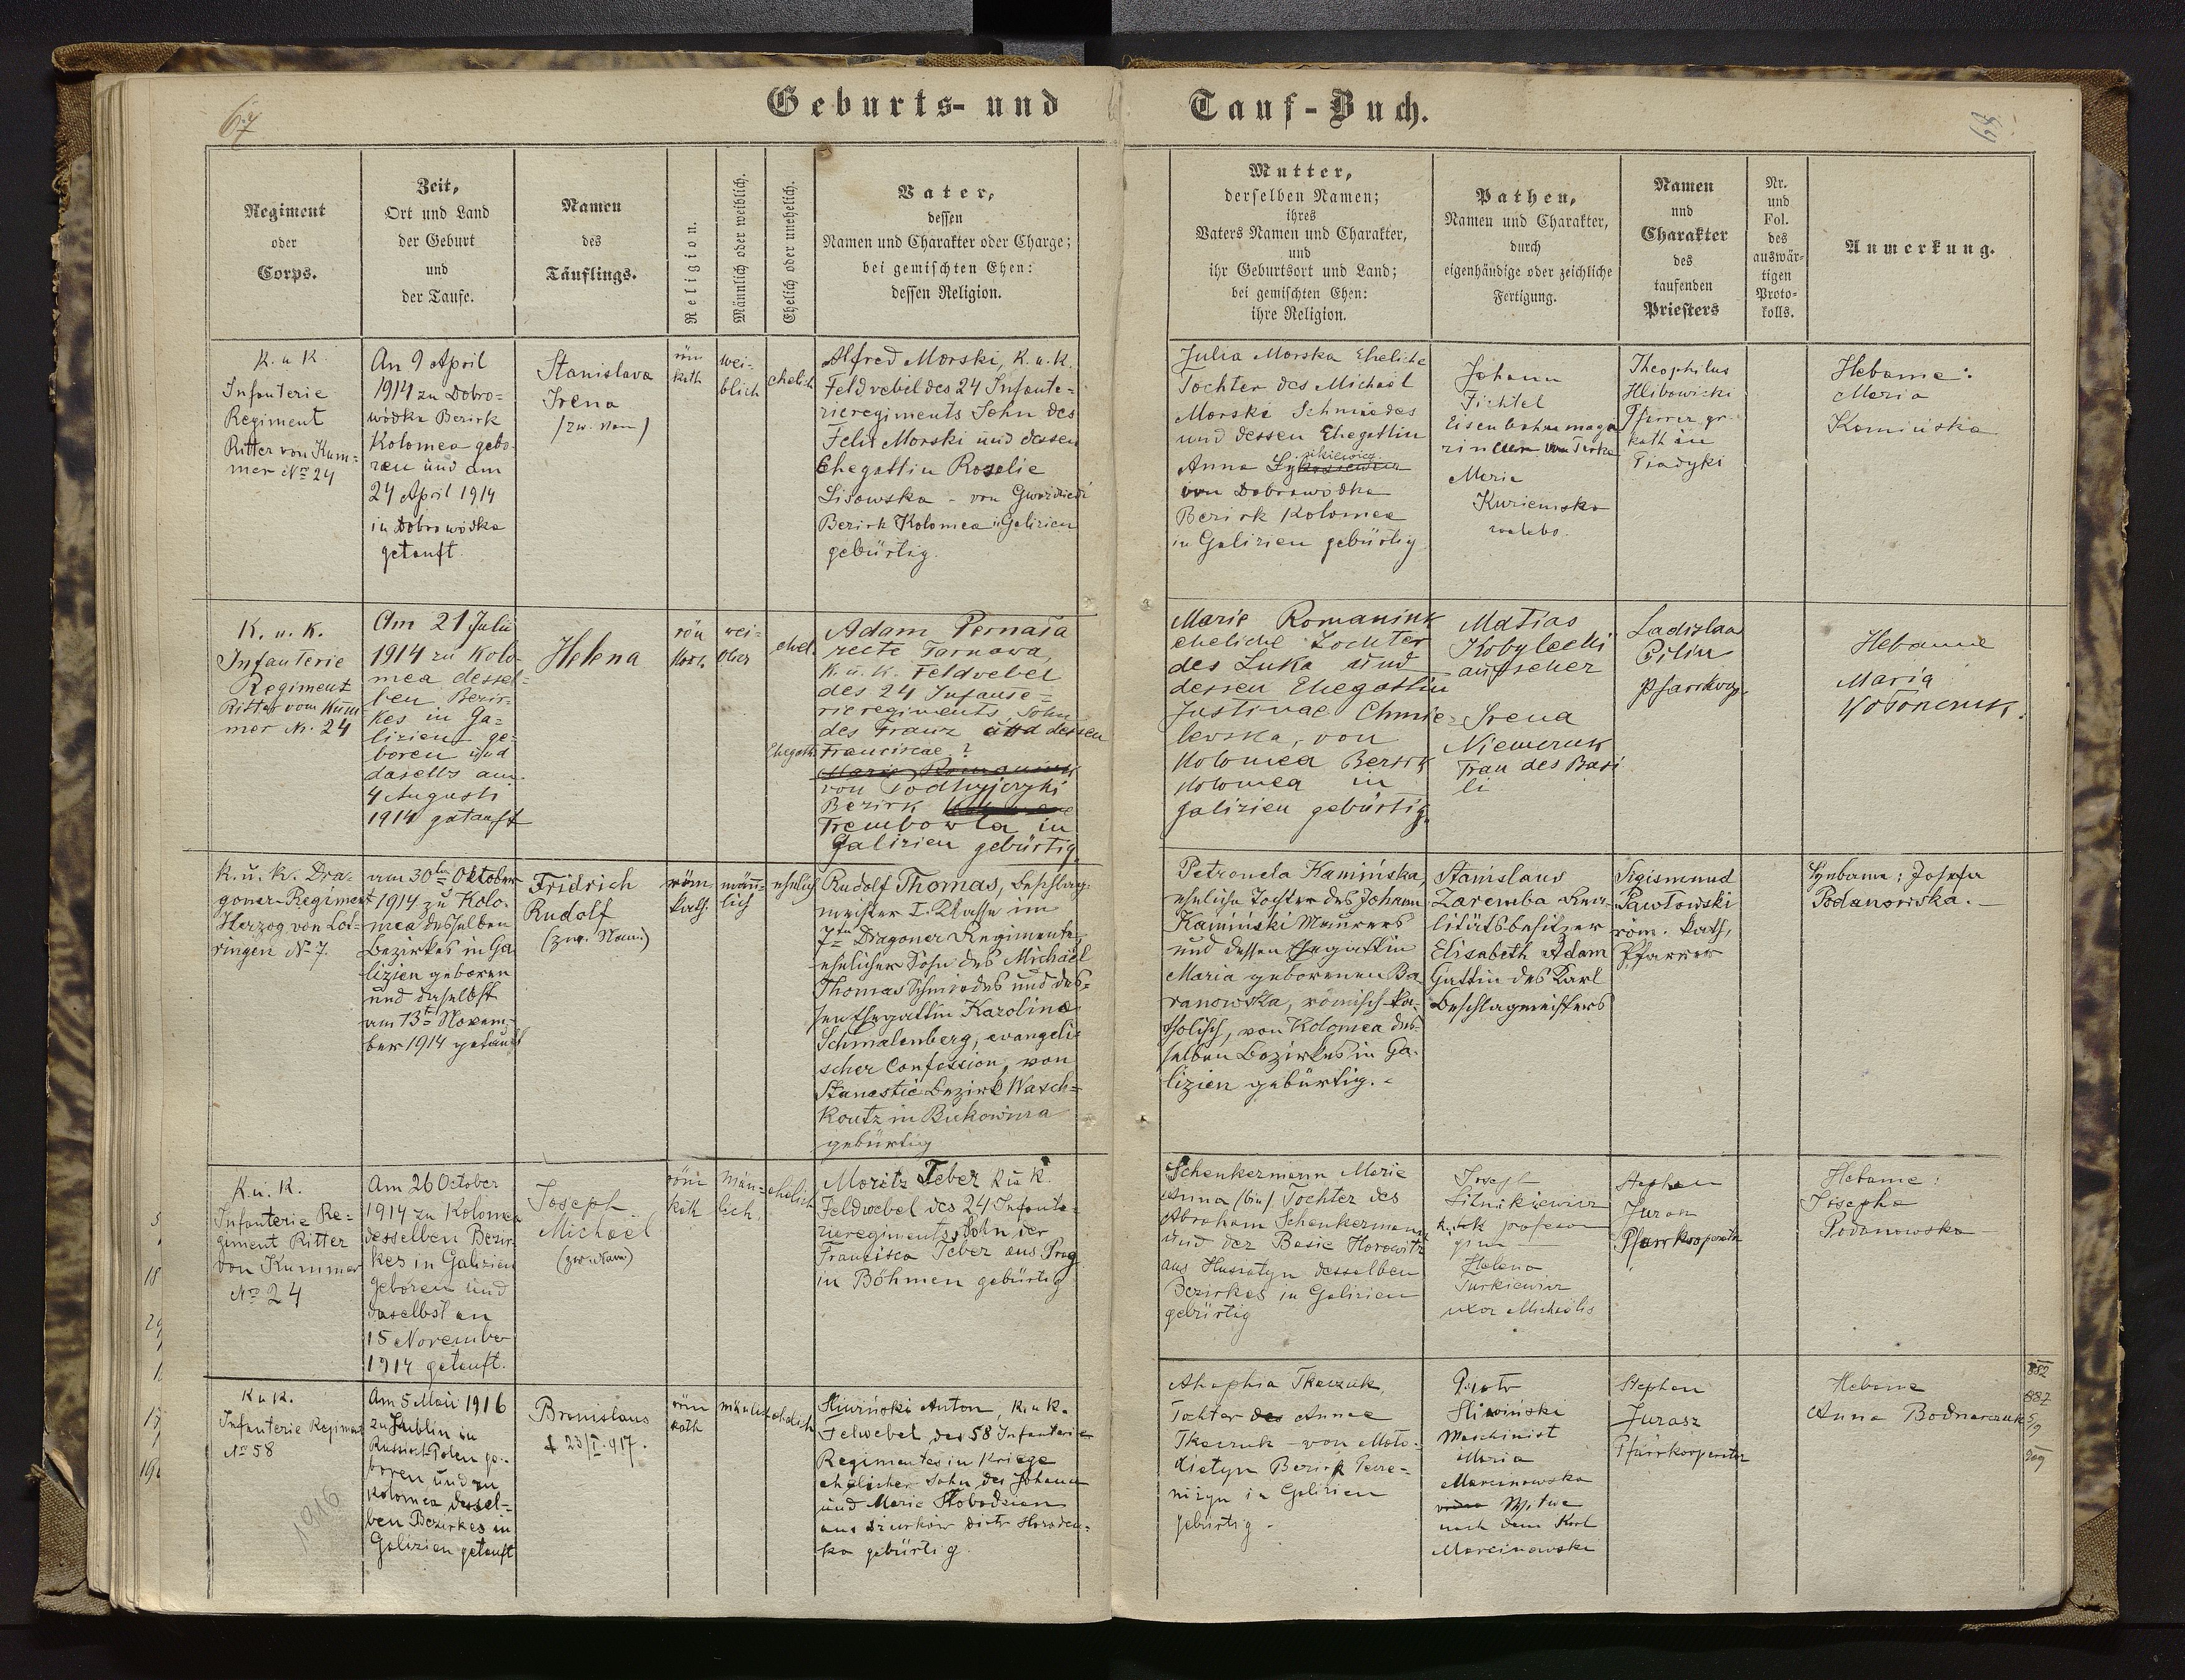 67
Geburts- und
Tauf-Buch.
68
Regiment
oder
Corps.
Zeit,
Ort und Land
der Geburt
und
der Taufe.
Namen
des
Täuflings.
Religion.
Männlich oder weiblich.
Ehelich oder unehelich.
Vater,
dessen
Namen und Charakter oder Charge;
bei gemischten Ehen:
dessen Religion.
Mutter,
derselben Namen;
ihres
Vaters Namen und Charakter,
und
ihr Geburtsort und Land;
bei gemischten Ehen:
ihre Religion.
Pathen,
Namen und Charakter,
durch
eigenhändige oder zeichliche
Fertigung.
Namen
und
Charakter
des
taufenden
Priesters
Nr.
und
Fol.
des
auswär-
tigen
Proto-
kolls.
Anmerkung.
K. u K.
Infanterie
Regiment
Ritter von Kum-
mer No 24
An 9 April
1914 zu Dobro-
wódka Bezirk
Kolomea gebo-
ren und am
24 April 1914
in Dobrowódka
getauft
Stanislava
Irena
(zw. Nam)
röm
kath
wei-
blich
ehelich
Alfred Morski, K. u. K.
Feldwebel des 24 Infante-
rieregiments Sohn des
Felix Morski und dessen
Ehegattin Rosalie
Lisowska - von
Bezirk Kolomea in Galizien
gebürtig.
Julia Morska Eheliche
Tochter des Michael
Morski Schmiedes
und dessen Ehegattin
Anna
von Dobrowodka
Bezirk Kolomea
in Galizien gebürtig
Johann
Fichtel
Maria
Theophilus
Hlibowicki
Pfarrer gr.
kath in
Piadyki
Hebame:
Maria
Kamińska
K. u. K.
Infanterie
Regiment
Ritter vom Kum-
mer Nr. 24
Am 21 Juli
1914 zu Kolo-
mea dessel-
ben Bezir-
kes in Ga-
lizien ge-
boren und
daselbs am
4 Augusti
1914 getauft
Helena
röm
kath.
wei-
blich
ehel.
Adam Pernata
recte Tarnawa,
K. u. K. Feldwebel
des 24 Infante-
rieregiments, Sohn
des Franz und dessen
Ehegatti Franciscae ?
Marie Romaniuk
von Podhyjczyki
Bezirk
Trembowla in
Galizien gebürtig
Marie Romaniuk
eheliche Tochter
des Luka und
dessen Ehegattin
Justinae Chmie-
lewska, von
Kolomea Bezirk
Kolomea in
Galizien gebürtig.
Matias
Kobylecki
aufseher
Irena
Niemczuk
Frau des Basi
li
Ladislaus
Pilin
Pfarrkoop.
Hebamme
Maria
K. u. K. Dra-
goner-Regiment
Herzog von Lot-
ringen No 7.
am 30ten Oktober
1914 zu Kolo-
mea desselben
Bezirkes in Ga-
lizien geboren
und daselbst
am 13t Novem-
ber 1914 getauft
Fridrich
Rudolf
(zw. Nam.)
röm.
kath.
männ-
lich
ehelich
Rudolf Thomas, Beschlag-
meister I. Klasse im
7ten Dragoner Regimente
ehelicher Sohn des Michael
Thomas Schmiedes und des-
sen Ehegattin Karolina
Schmalenberg, evangeli-
scher Confession, von
Stanestie Bezirk Wasch-
koutz in Bukowina
gebürtig
Petronela Kamińska,
eheliche Tochter des Johann
Kamiński Maurers
und dessen Ehegattin
Maria geborenen Ba-
ranowska, römisch-ka-
tholisch, von Kolomea des-
selben Bezirkes in Ga-
lizien gebürtig. -
Stanislaus
Zaremba Rea-
litätsbesitzer
Elisabeth Adam
Gattin des Karl
Beschlagmeisters
Sigismund
Pawłowski
röm. kath.
Pfarrer
Hebame: Josefa
Podanowska. -
K. u. K.
Infanterie Re-
giment Ritter
von Kummer
No 24
Am 26 October
1914 zu Kolomea
desselben Bezir-
kes in Galizien
geboren und
daselbst an
15 November
1914 getauft.
Joseph
Michael
(zw. Nam)
röm
kath
män-
lich
ehelich
Moritz Teber K u K.
Feldwebel des 24 Infante-
rieregiments, Sohn der
Francisca Teber aus Prag
in Böhmen gebürtig
Schenkermann Marie
Anna (bin) Tochter des
Abraham Schenkermann
und der Basie Horowitz
aus Husiatyn desselben
Bezirkes in Galizien
gebürtig
Joseph
Sitnikiewicz
k. u k profesor
gim
Helena
Turkiewicz
uxor Michaelis
Stephan
Jurasz
Pfarrkooperator
Hebame:
Josepha
Podanowska
K u K.
Infanterie Regiment
No 58
Am 5 Mai 1916
zu Lublin in
Russisch Polen ge-
boren und zu
Kolomea dessel-
ben Bezirkes in
Galizien getauft
1916
Bronislaus
† 23/I 917.
röm
kath
mänlich
ehelich
Sliwiński Anton, K. u K.
Felwebel des 58 Infanterie
Regimentes in Kriege
ehelicher Sohn des Johann
und Marie Słobodzian
aus Dżurków Distr Horoden-
ka gebürtig
Ahaphia Tkaczuk,
Tochter der Annae
Tkaczuk - von Moło-
dietyn Bezirk Pecze-
niżyn in Galizien
gebürtig -
Piotr
Sliwiński
Maschinist
Maria
Marcinowska
Witwe
nach dem Karl
Marcinowski
Stephan
Jurasz
Pfarrkooperator
Hebame
Anna Bodnarczuk
882
887